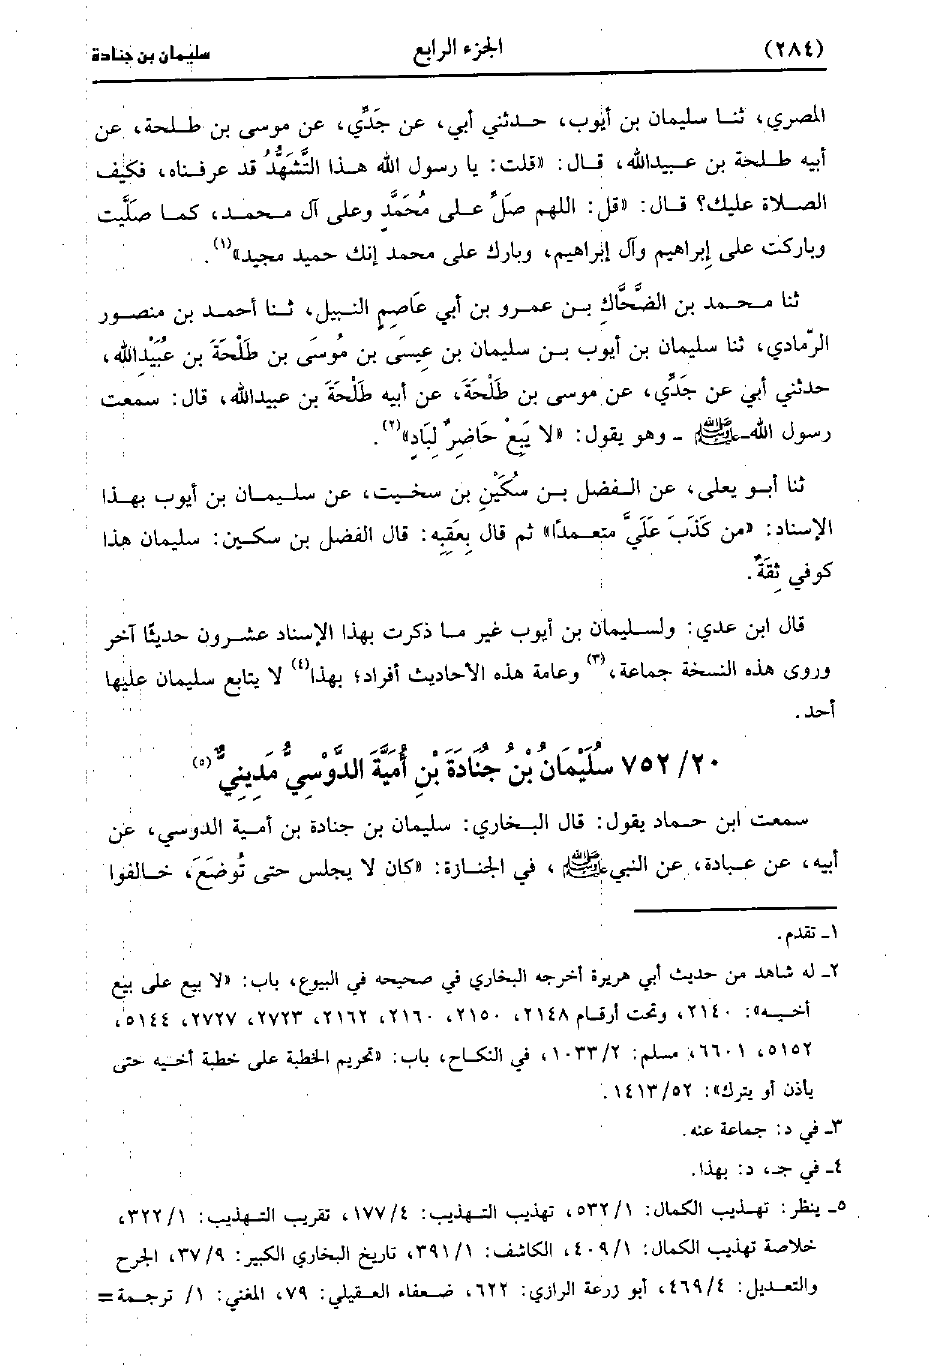 (٢٨٤) الجزء الرابع سليمان بن جنادة
المصري، ثنا سليمان بن أيوب، حدثني أبي، عن جَدِّي، عن موسى بن طلحة، عن
أبيه طلحة بن عبيدالله، قال: «قلت: يا رسول الله هذا التَّشَهُّدُ قد عرفناه، فكيف
الصلاة عليك؟ قال: «قل: اللهم صلِّ على مُحَمَّدٍ وعلى آل محمد، كما صلَّيت
وباركت على إبراهيم وآل إبراهيم، وبارك على محمد إنك حميد مجيد»(١).
ثنا محمد بن الضَّحَّاكِ بن عمرو بن أبي عَاصِمٍ النبيل، ثنا أحمد بن منصور
الرّمادي، ثنا سليمان بن أيوب بن سليمان بن عِيسَى بن مُوسَى بن طَلْحَةَ بن عُبَيْدِالله،
حدثني أبي عن جَدِّي، عن موسى بن طَلْحَةَ، عن أبيه طَلْحَةَ بن عبيدالله، قال: سمعت
رسول الله ـ ﷺ ـ وهو يقول: «لا يَبِعْ حَاضِرٌ لِبَادٍ»(٢).
ثنا أبو يعلى، عن الفضل بن سُكَيْنِ بن سخيت، عن سليمان بن أيوب بهذا
الإسناد: «من كَذَبَ عَلَيَّ متعمداً» ثم قال بِعَقِبِه: قال الفضل بن سكين: سليمان هذا
كوفي ثِقَةٌ.
قال ابن عدي: ولسليمان بن أيوب غير ما ذكرت بهذا الإسناد عشرون حديثًا آخر
وروى هذه النسخة جماعة،(٣) وعامة هذه الأحاديث أفراد؛ بهذا(٤) لا يتابع سليمان عليها
أحد.
٧٥٢/٢٠ سُلَيْمَانُ بْنُ جُنَادَةَ بْنِ أُمَيَّةَ الدَّوْسِيُّ مَدِينِيٌّ(٥)
سمعت ابن حماد يقول: قال البخاري: سليمان بن جنادة بن أمية الدوسي، عن
أبيه، عن عبادة، عن النبي ﷺ، في الجنازة: «كان لا يجلس حتى تُوضَعَ، خالفوا
١ـ تقدم.
٢ـ له شاهد من حديث أبي هريرة أخرجه البخاري في صحيحه في البيوع، باب: «لا بيع على بيع
أخيه»: ٢١٤٠، وتحت أرقام ٢١٤٨، ٢١٥٠، ٢١٦٠، ٢١٦٢، ٢٧٢٣، ٢٧٢٧، ٥١٤٤،
٥١٥٢، ٦٦٠١، مسلم: ١٠٣٣/٢، في النكاح، باب: «تحريم الخطبة على خطبة أخيه حتى
يأذن أو يترك»: ١٤١٣/٥٢.
٣ـ في د: جماعة عنه.
٤ـ في جـ، د: بهذا.
٥ـ ينظر: تهذيب الكمال: ٥٣٢/١، تهذيب التهذيب: ١٧٧/٤، تقريب التهذيب: ٣٢٢/١،
خلاصة تهذيب الكمال: ٤٠٩/١، الكاشف: ٣٩١/١، تاريخ البخاري الكبير: ٣٧/٩، الجرح
والتعديل: ٤٦٩/٤، أبو زرعة الرازي: ٦٢٢، ضعفاء العقيلي: ٧٩، المغني: ١/ ترجمة=